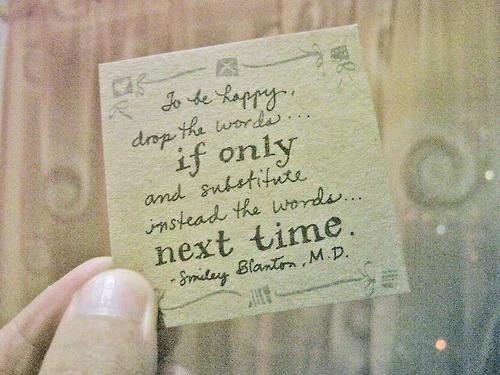 To be happy,
drop the words...
if only
and substitute
instead the words...
next time.
- Smiley Blanton, M.D.